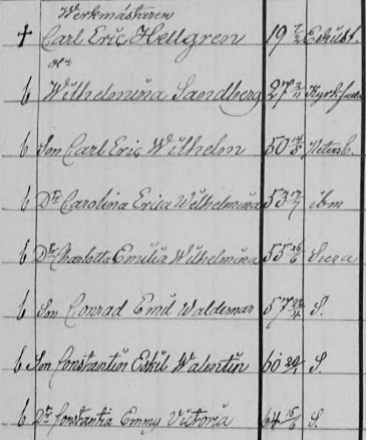 Werkmästaren
† Carl Eric Hellgren 19 7/2 Eskilst.
b Wilhelmina Sandberg 27 3/11
b Son Carl Eric Wilhelm 50 14/8 Petersb.
b Dr Carolina Erica Wilhelmina 53 ibm
b Dr Charlotta Emilia Wilhelmina 55 26/6
b Son Conrad Emil Waldemar 57 S.
b Son Constantin Eskil Walentin 60 S.
b Dr Constantia Emmy Victoria 64 16/6 S.